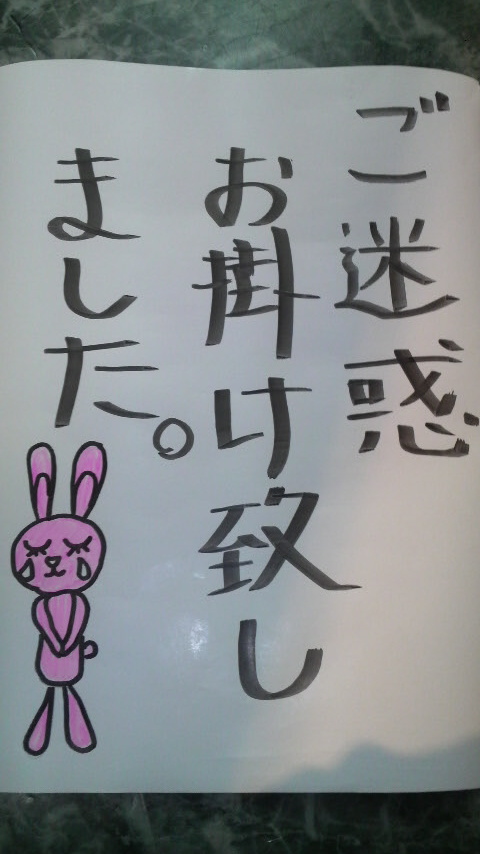 ご迷惑
お掛け致し
ました。